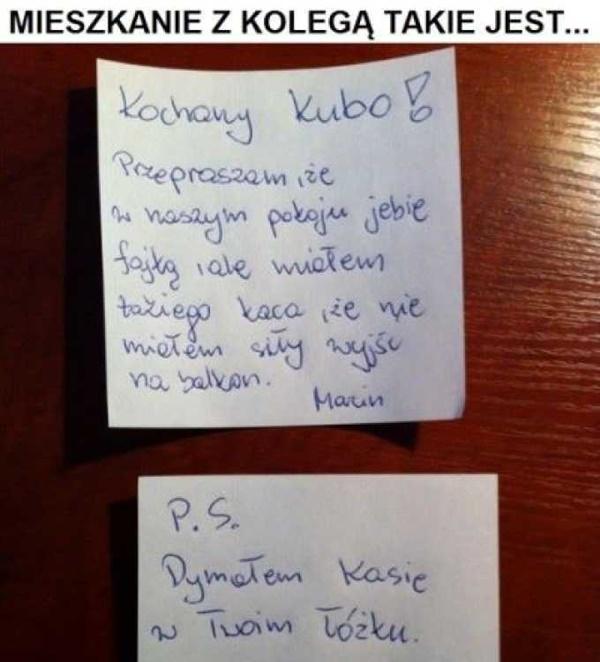 MIESZKANIE Z KOLEGĄ TAKIE JEST...
Kochany Kubo!
Przepraszam, że
w naszym pokoju jebie
fajką, ale miałem
takiego kaca, że nie
miałem siły wyjść
na balkon.
Marcin
P.S.
Dymałem Kasię
w Twoim łóżku.